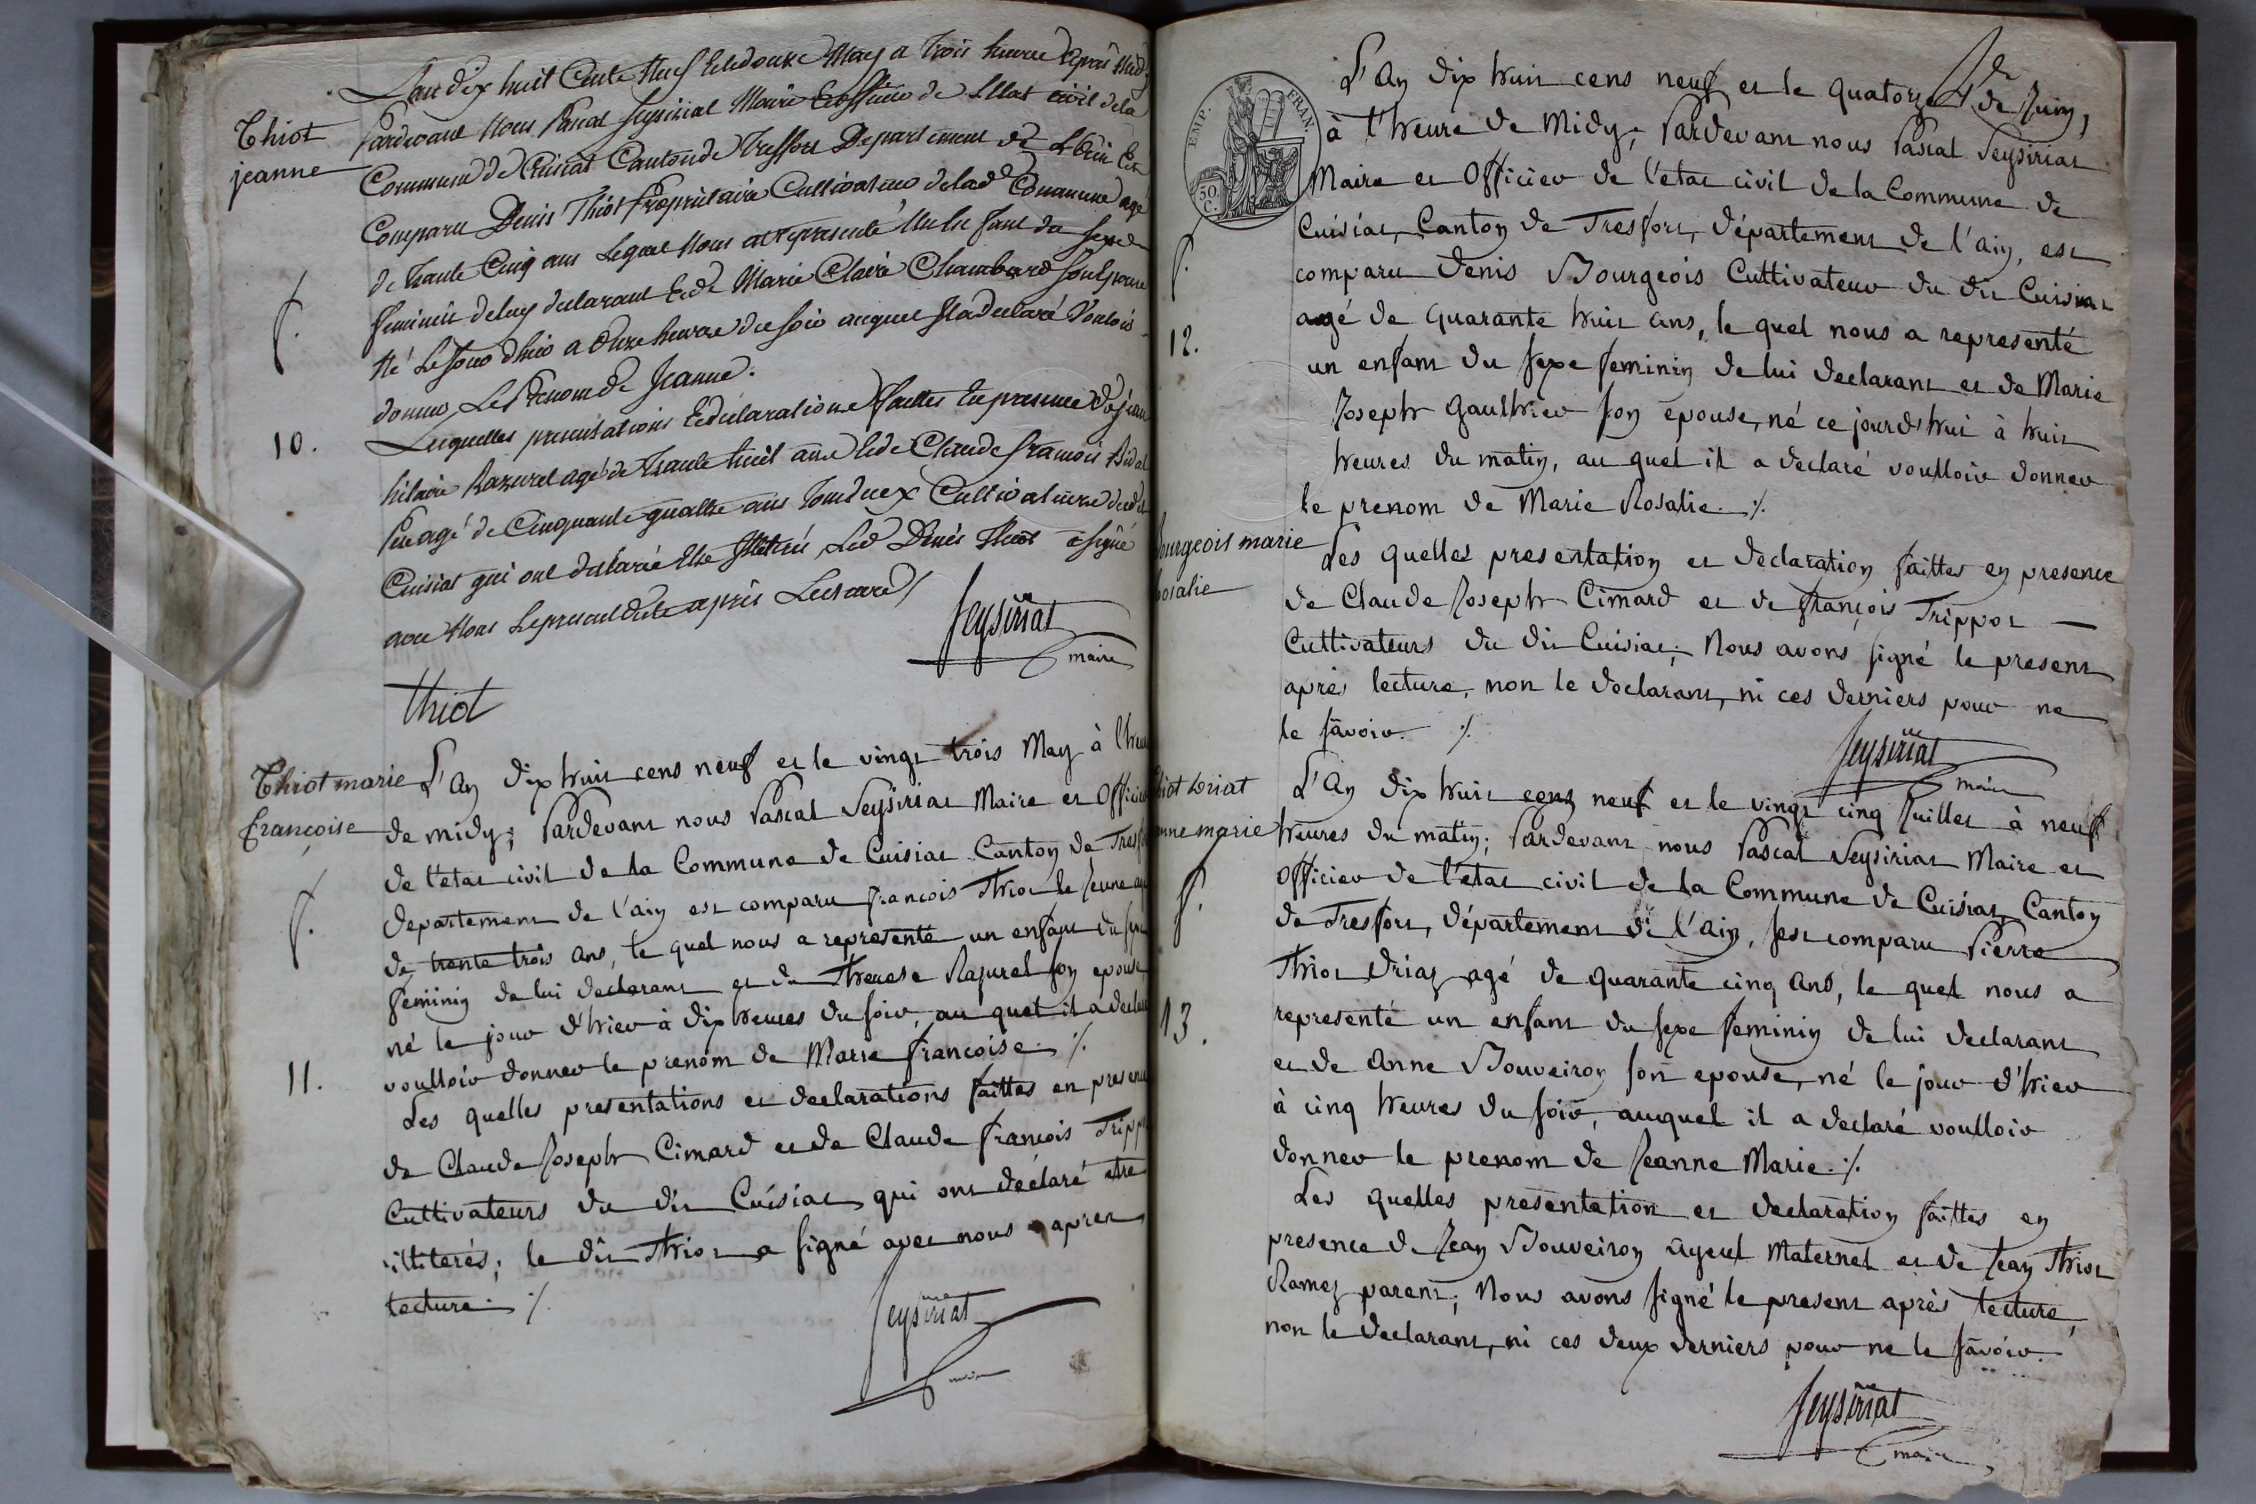 L'an dix huit Cents Neuf Et le douze May a trois heure depres Midy
Thiot
jeanne
Pardevant Nous Pascal Seysiriat Maire Et officier de L'Etat civil de la
Commune de Cuisiat Canton de Tresfort Departement de L'Ain Est
Comparu Denis Thiot Propriétaire Cultivateur de lad. Commune agé
de Trante Cinq ans Lequel Nous at représenté un En fant du sexe
feminin de luy declarant Et de Marie Claire Chambard son Epouse
Né Le Jour d'hier a onze heure du soir auquel Il a declaré Vouloir
donner Le Prenom de Jeanne.
10.
Lesquelles presentations Et declaration faittes En presence de Jean
hilaire Razurel agé de Trante huit ans Et de Claude francois Bidal
agé de Cinquante quattre ans Tout deux Cultivateurs dud.
Cuisiat qui ont declarié Etre Illétrés, Led Denis Thiot a signé
avec Nous Le present acte apres Lecture
Seysiriat
maire
thiot
Thiot marie
françoise
L'an dix huit cens neuf et le vingt trois May à l'heure
de midy; Pardevant nous Pascal Seysiriat Maire et Officier
de l'etat civil de la Commune de Cuisiat Canton de Tresfort
departement de l'ain est comparu françois Thiot le Jeune agé
de trente trois ans, le quel nous a representé un enfant du sexe
feminin de lui declarant et de Therese Razurel son epouse
né le jour d'hier à dix heures du soir, au quel il a declaré
11.
voulloir donner le prenom de Marie françoise. ./.
Les quelles presentations et declarations faittes en presence
de Claude Joseph Cimard et de Claude françois Trippoz
Cultivateurs du dit Cuisiat qui ont déclaré etre
illiterés; le dit Thiot a signé avec nous apres
lecture. ./.
Seysiriat
maire
EMP. FRAN.
50
C.
L'an dix huit cens neuf et le quatorze de Juin,
à l'heure de Midy; Pardevant nous Pascal Seysiriat
Maire et Officier de l'etat civil de la Commune de
Cuisiat, Canton de Tresfort, département de l'ain, est
comparu Denis Bourgeois Cultivateur du dit Cuisiat
agé de quarante huit ans, le quel nous a representé
12.
un enfant du sexe feminin de lui declarant et de Marie
Joseph Gaulthier son epouse, né ce jourd'hui à huit
heures du matin, au quel il a declaré voulloir donner
le prenom de Marie Rosalie. ./.
Bourgeois marie
rosalie
Les quelles presentation et declaration faittes en presence
de Claude Joseph Cimard et de françois Trippoz
Cultivateurs du dit Cuisiat; Nous avons signé le present
après lecture, non le declarant, ni ces derniers pour ne
le sávoir. ./.
Seysiriat
maire
Thiot driat
jeanne marie
L'an dix huit cens neuf et le vingt cinq Juillet à neuf
heures du matin; Pardevant nous Pascal Seysiriat Maire et
Officier de l'etat civil de la Commune de Cuisiat, Canton
de Tresfort, département de l'ain, est comparu Pierre
Thiot Driaz agé de quarante cinq ans, le quel nous a
13.
representé un enfant du sexe feminin de lui declarant
et de Anne Bouveiron son epouse, né le jour d'hier
à cinq heures du soir, auquel il a declaré voulloir
donner le prenom de Jeanne Marie. ./.
Les quelles presentation et declaration faittes en
presence de Jean Bouveiron ayeul Maternel et de Jean Thiot
Ramez parent; Nous avons signé le present après lecture,
non le declarant, ni ces deux derniers pour ne le sávoir.
Seysiriat
maire